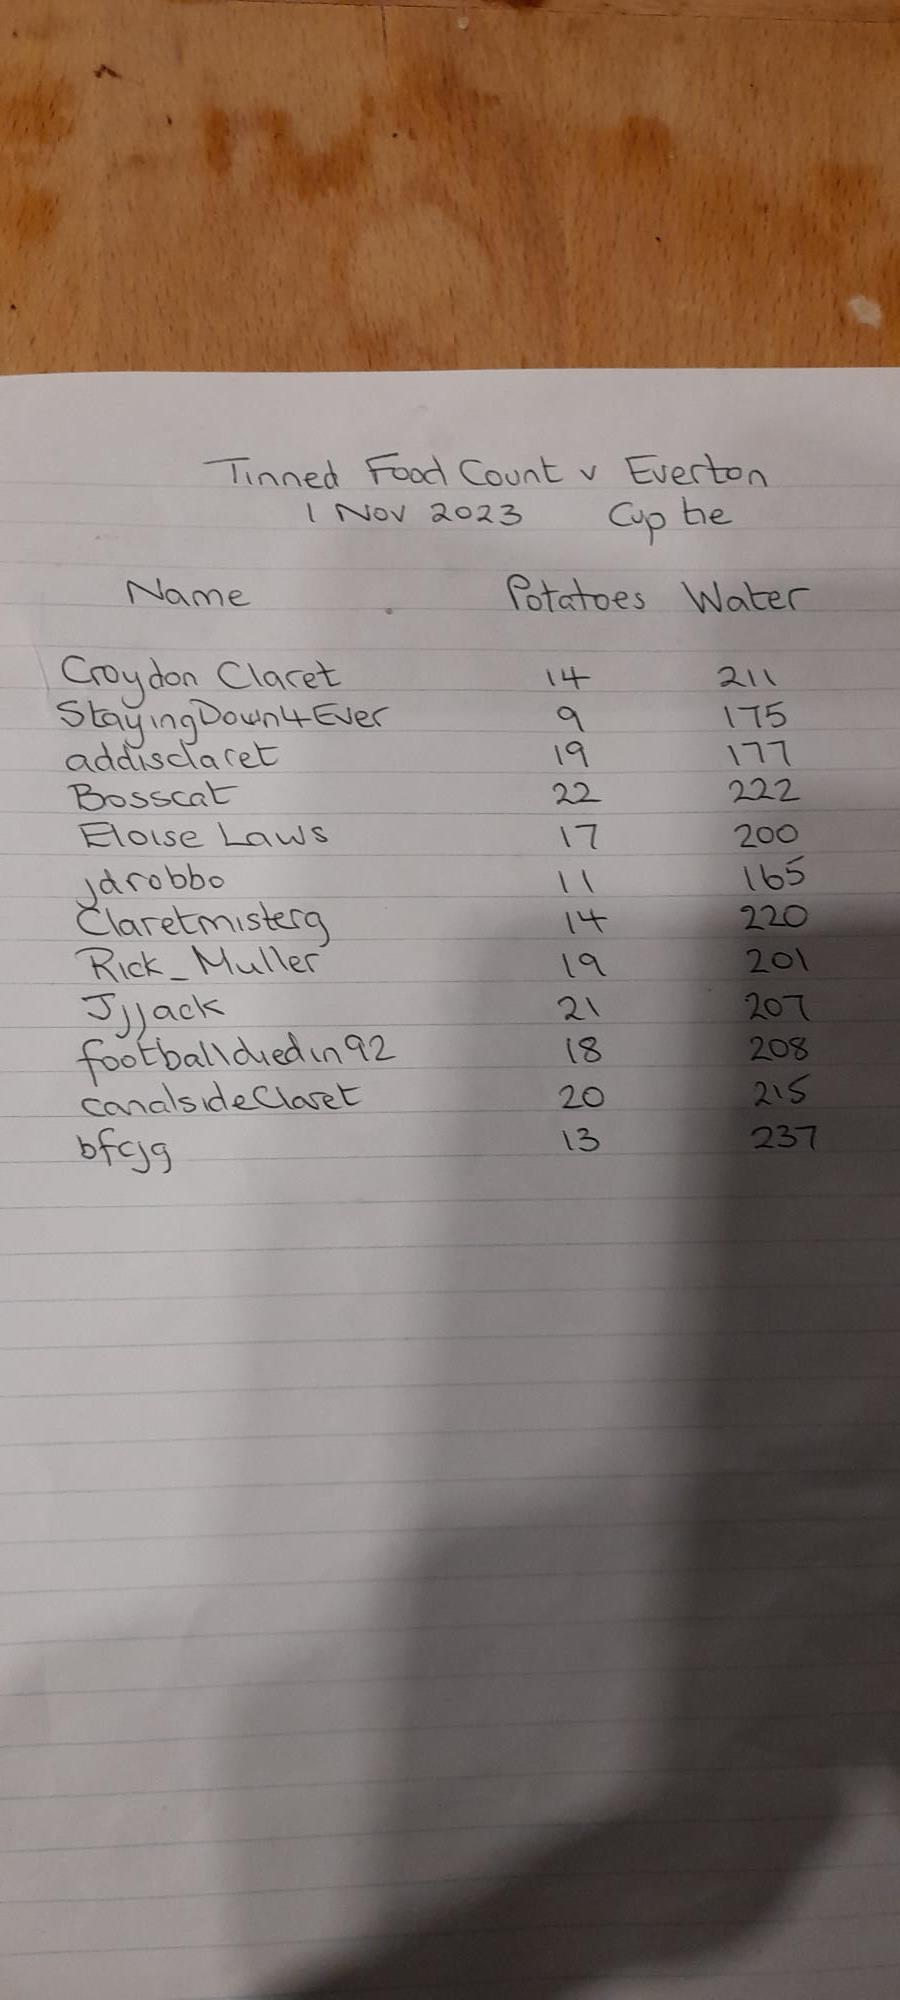 Tinned Food Count v Everton
1 Nov 2023 Cup tie
Name Potatoes Water
Croydon Claret 14 211
StayingDown4Ever 9 175
addisclaret 19 177
Bosscat 22 222
Eloise Laws 17 200
jdrobbo 11 165
Claretmisterg 14 220
Rick_Muller 19 201
Jjjack 21 207
footballdiedin92 18 208
canalsideClaret 20 215
bfcjg 13 237